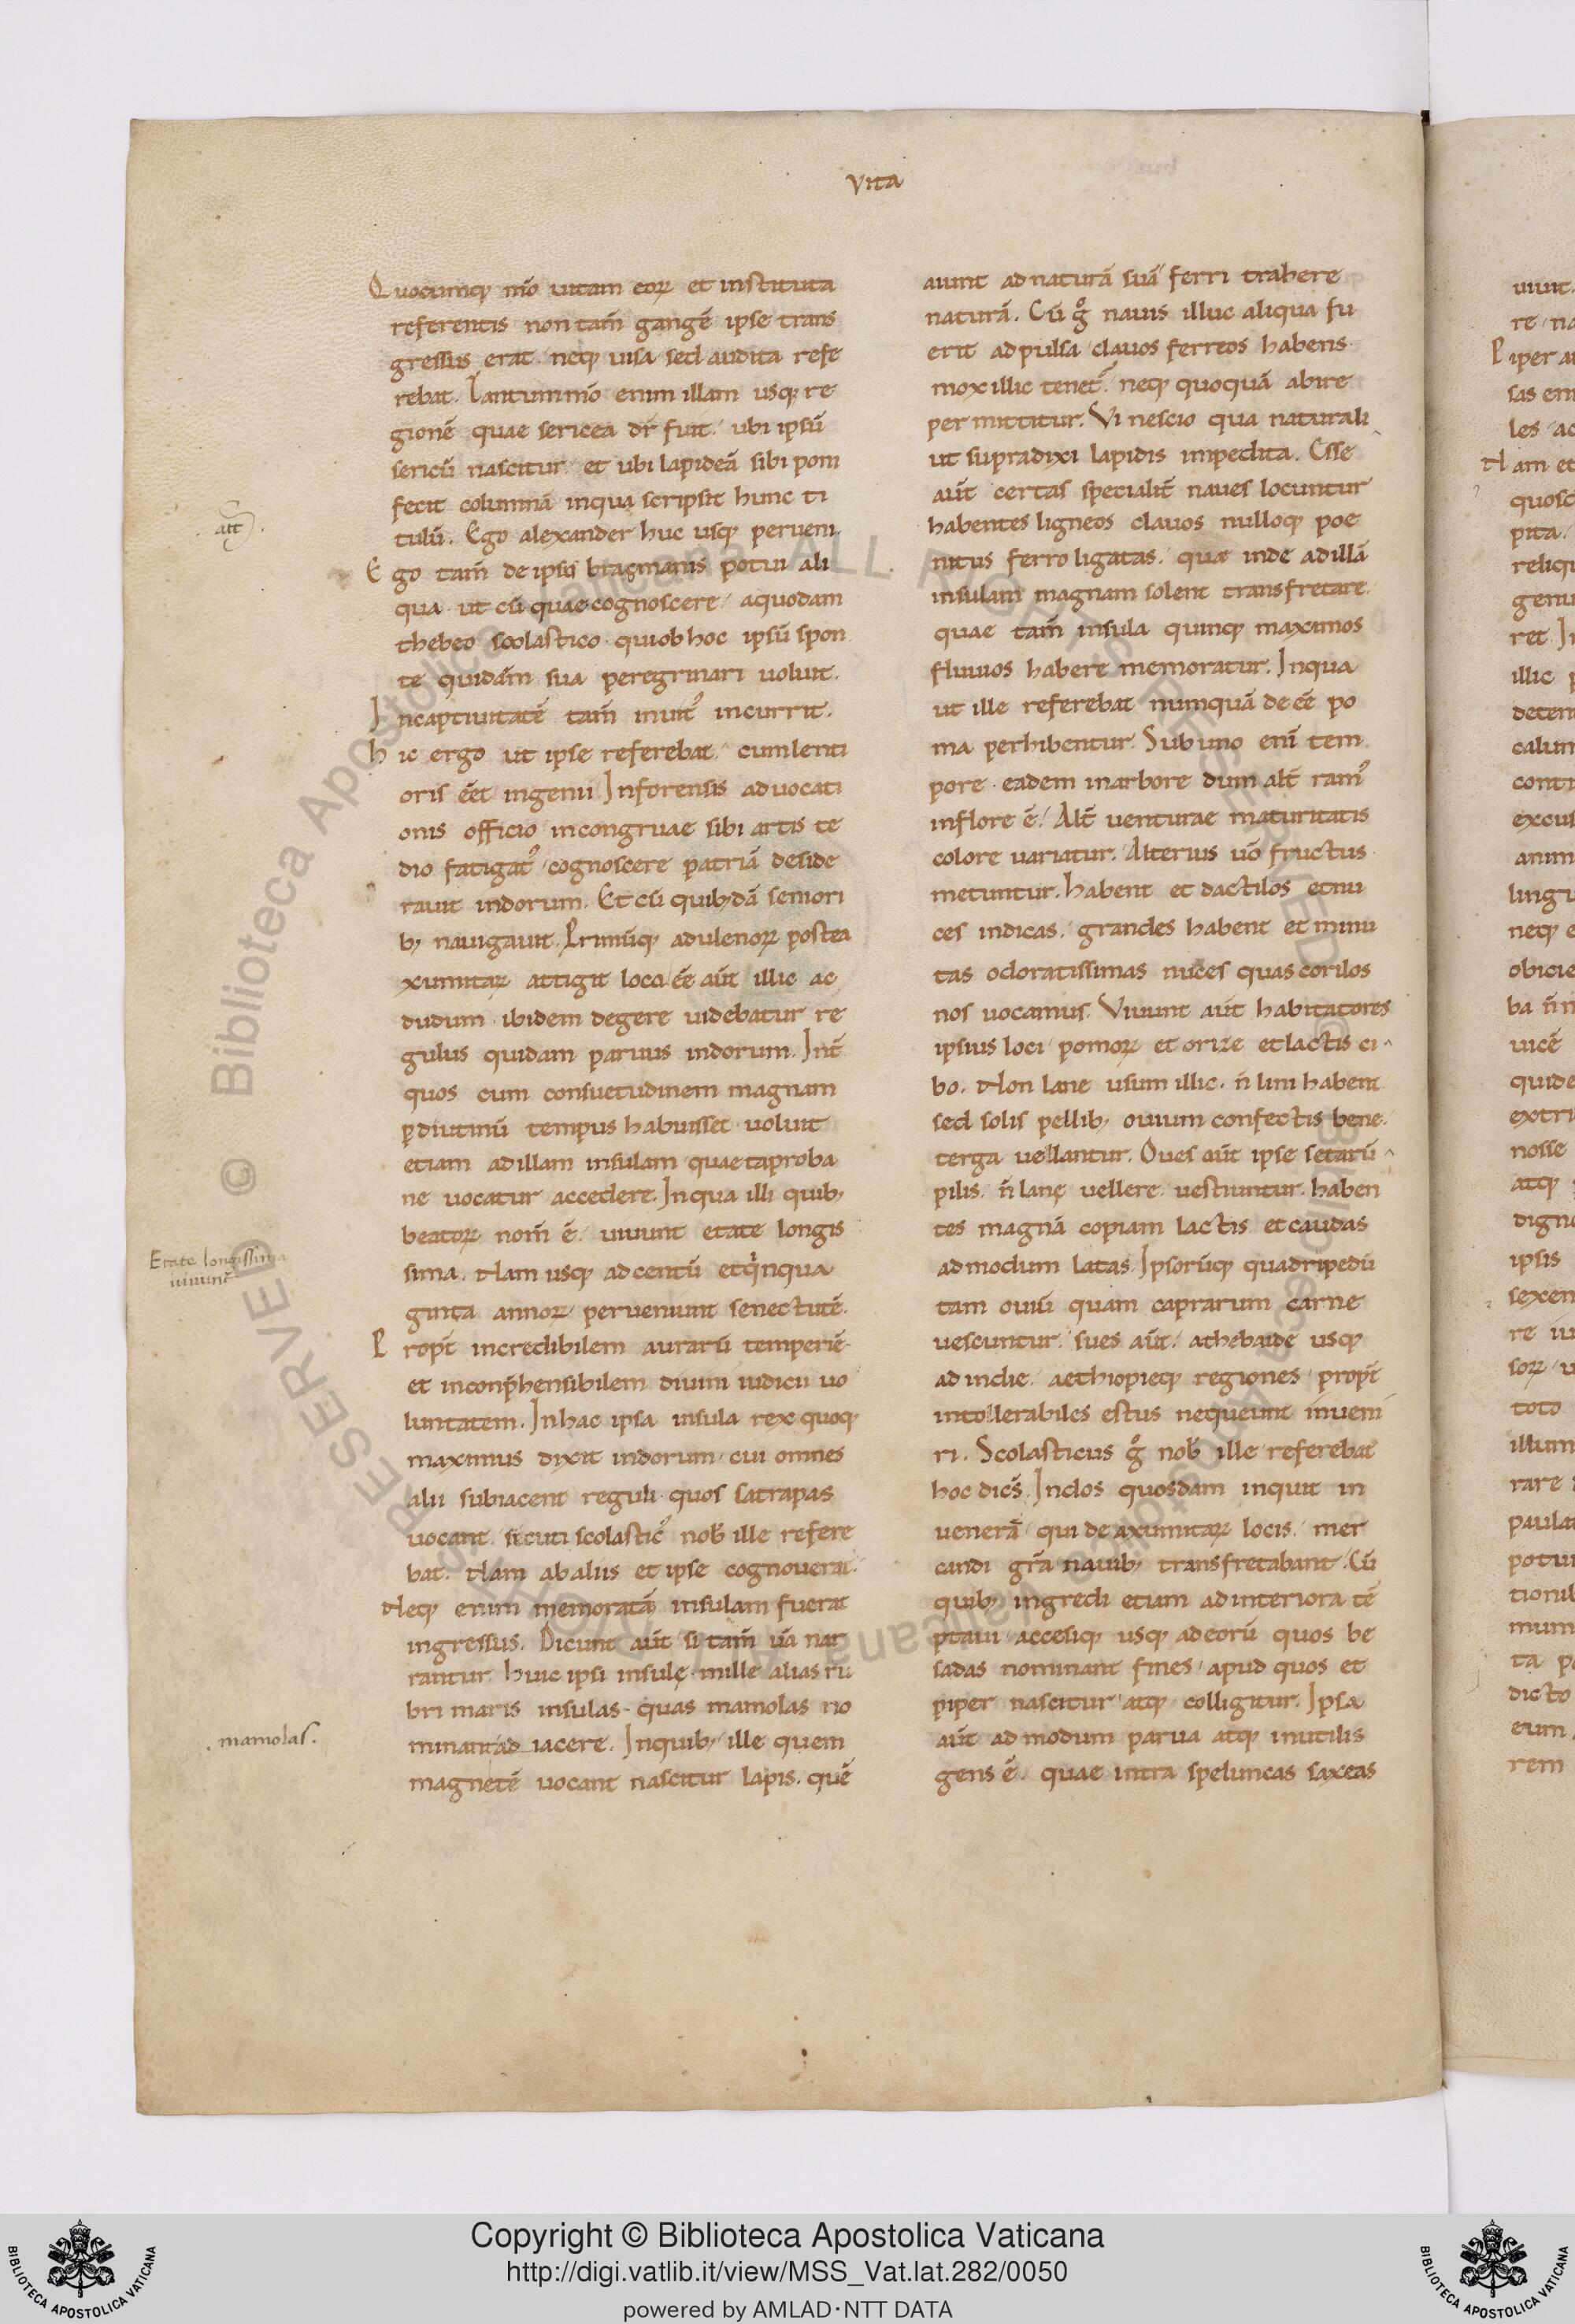 vita
Quocumq; m̄o uitam eoꝝ et instituta
referentis non tam̄ gangē ipse trans
gressus erat neq; uisa sed audita refe
rebat. Tantum m̄o enim illam usq; re
gionē quae sericea dr̄ fuit. ubi ipsū
sericū nascitur et ubi lapideā sibi poni
fecit columnā inqua scripsit hunc ti
tulū. Ego alexander huc usq; perueni.
Ego tam̄ de ipsis bragmanis potui ali
qua ut cū quae cognoscere aquodam
thebeo scolastico quiobhoc ipsū spon
te quidam sua peregrinari uoluit.
Incaptiuitatē tam̄ inuit᾽ incurrit.
hic ergo ut ipse referebat cumlenti
oris eēt ingenii Inforensis aduocati
onis officio incongruae sibi artis te
dio fatigat᾽ cognoscere patriā deside
rauit indorum. Et cū quib;dā seniori
b; nauigauit. Primūq; adulenoꝝ postea
xumitaꝝ attigit loca eē aūt illic ac
dudum ibidem degere uidebatur re
gulus quidam paruus indorum. Int̄
quos cum consuetudinem magnam
ꝑdiutinū tempus habuisset uoluit
etiam adillam insulam quaetaproba
ne uocatur accedere. Inqua illi quib;
beatoꝝ nom̄ ē. uiuunt etate longis
sima. Nam usq; adcentū etq̇nqua
ginta annoꝝ perueniunt senectutē.
Propt̄ incredibilem aurarū temperiē
et inconp̄hensibilem diuini iudicii uo
luntatem. Inhac ipsa insula rex quoq;
maximus dixit indorum cui omnes
alii subiacent reguli quos satrapas
uocant sicuti scolastic᾽ nob̄ ille refere
bat. Nam abaliis et ipse cognouerat.
Neq; enim memoratā insulam fuerat
ingressus. Dicunt aūt si tam̄ ūa nar
rantur. huic ipsi insulę mille alias ru
bri maris insulas quas mamolas no
minant adiacere. Inquib; ille quem
magnetē uocant nascitur lapis. quē
aiunt adnaturā suā ferri trahere
naturā. Cū g̊ nauis illuc aliqua fu
erit adpulsa clauos ferreos habens
mox illic tenet᾽. neq; quoquā abire
permittitur. Vi nescio qua naturali
ut supradixi lapidis impedita. Esse
aūt certas specialit̄ naues locuntur
habentes ligneos clauos nulloq; poe
nitus ferro ligatas. quae inde adillā
insulam magnam solent transfretare.
quae tam̄ insula quinq; maximos
fluuios habere memoratur. Inqua
ut ille referebat numquā deeē po
ma perhibentur. Subuno eni tem
pore eadem inarbore dum alt̄ ram᾽
inflore ē. Alt̄ uenturae maturitatis
colore uariatur. Alterius uō fructus
metuntur. habent et dactilos etnu
ces indicas. grandes habent et minu
tas odoratissimas nuces quas corilos
nos uocamus. Viuunt aūt habitatores
ipsius loci pomoꝝ et orize etlactis ci
bo. Non lane usum illic. n̄ lini habent
sed solis pellib; ouium confectis bene
terga uellantur. Oues aūt ipse setarū
pilis. n̄ lanę uellere uestiuntur. haben
tes magnā copiam lactis etcaudas
admodum latas. Ipsorūq; quadripedū
tam ouiū quam caprarum carne
uescuntur. sues aūt. athebaide usq;
adindie. aethiopieq; regiones propt̄
intollerabiles estus nequeunt inueni
ri. Scolasticus g̊ nob̄ ille referebat
hoc dicēs. Indos quosdam inquit in
uenerā qui de axumitaꝝ locis. mer
candi gr̄a nauib; transfretabant. Cū
quib; ingredi etiam adinteriora tē
ptaui accesiq; usq; adeorū quos be
sadas nominant fines apud quos et
piper nascitur atq; colligitur. Ipsa
aūt admodum parua atq; inutilis
gens ē. quae intra speluncas saxeas
Etate longissima
uiuunt
. mamolas.
Copyright © Biblioteca Apostolica Vaticana
http://digi.vatlib.it/view/MSS_Vat.lat.282/0050
powered by AMLAD·NTT DATA
BIBLIOTECA APOSTOLICA VATICANA
BIBLIOTECA APOSTOLICA VATICANA